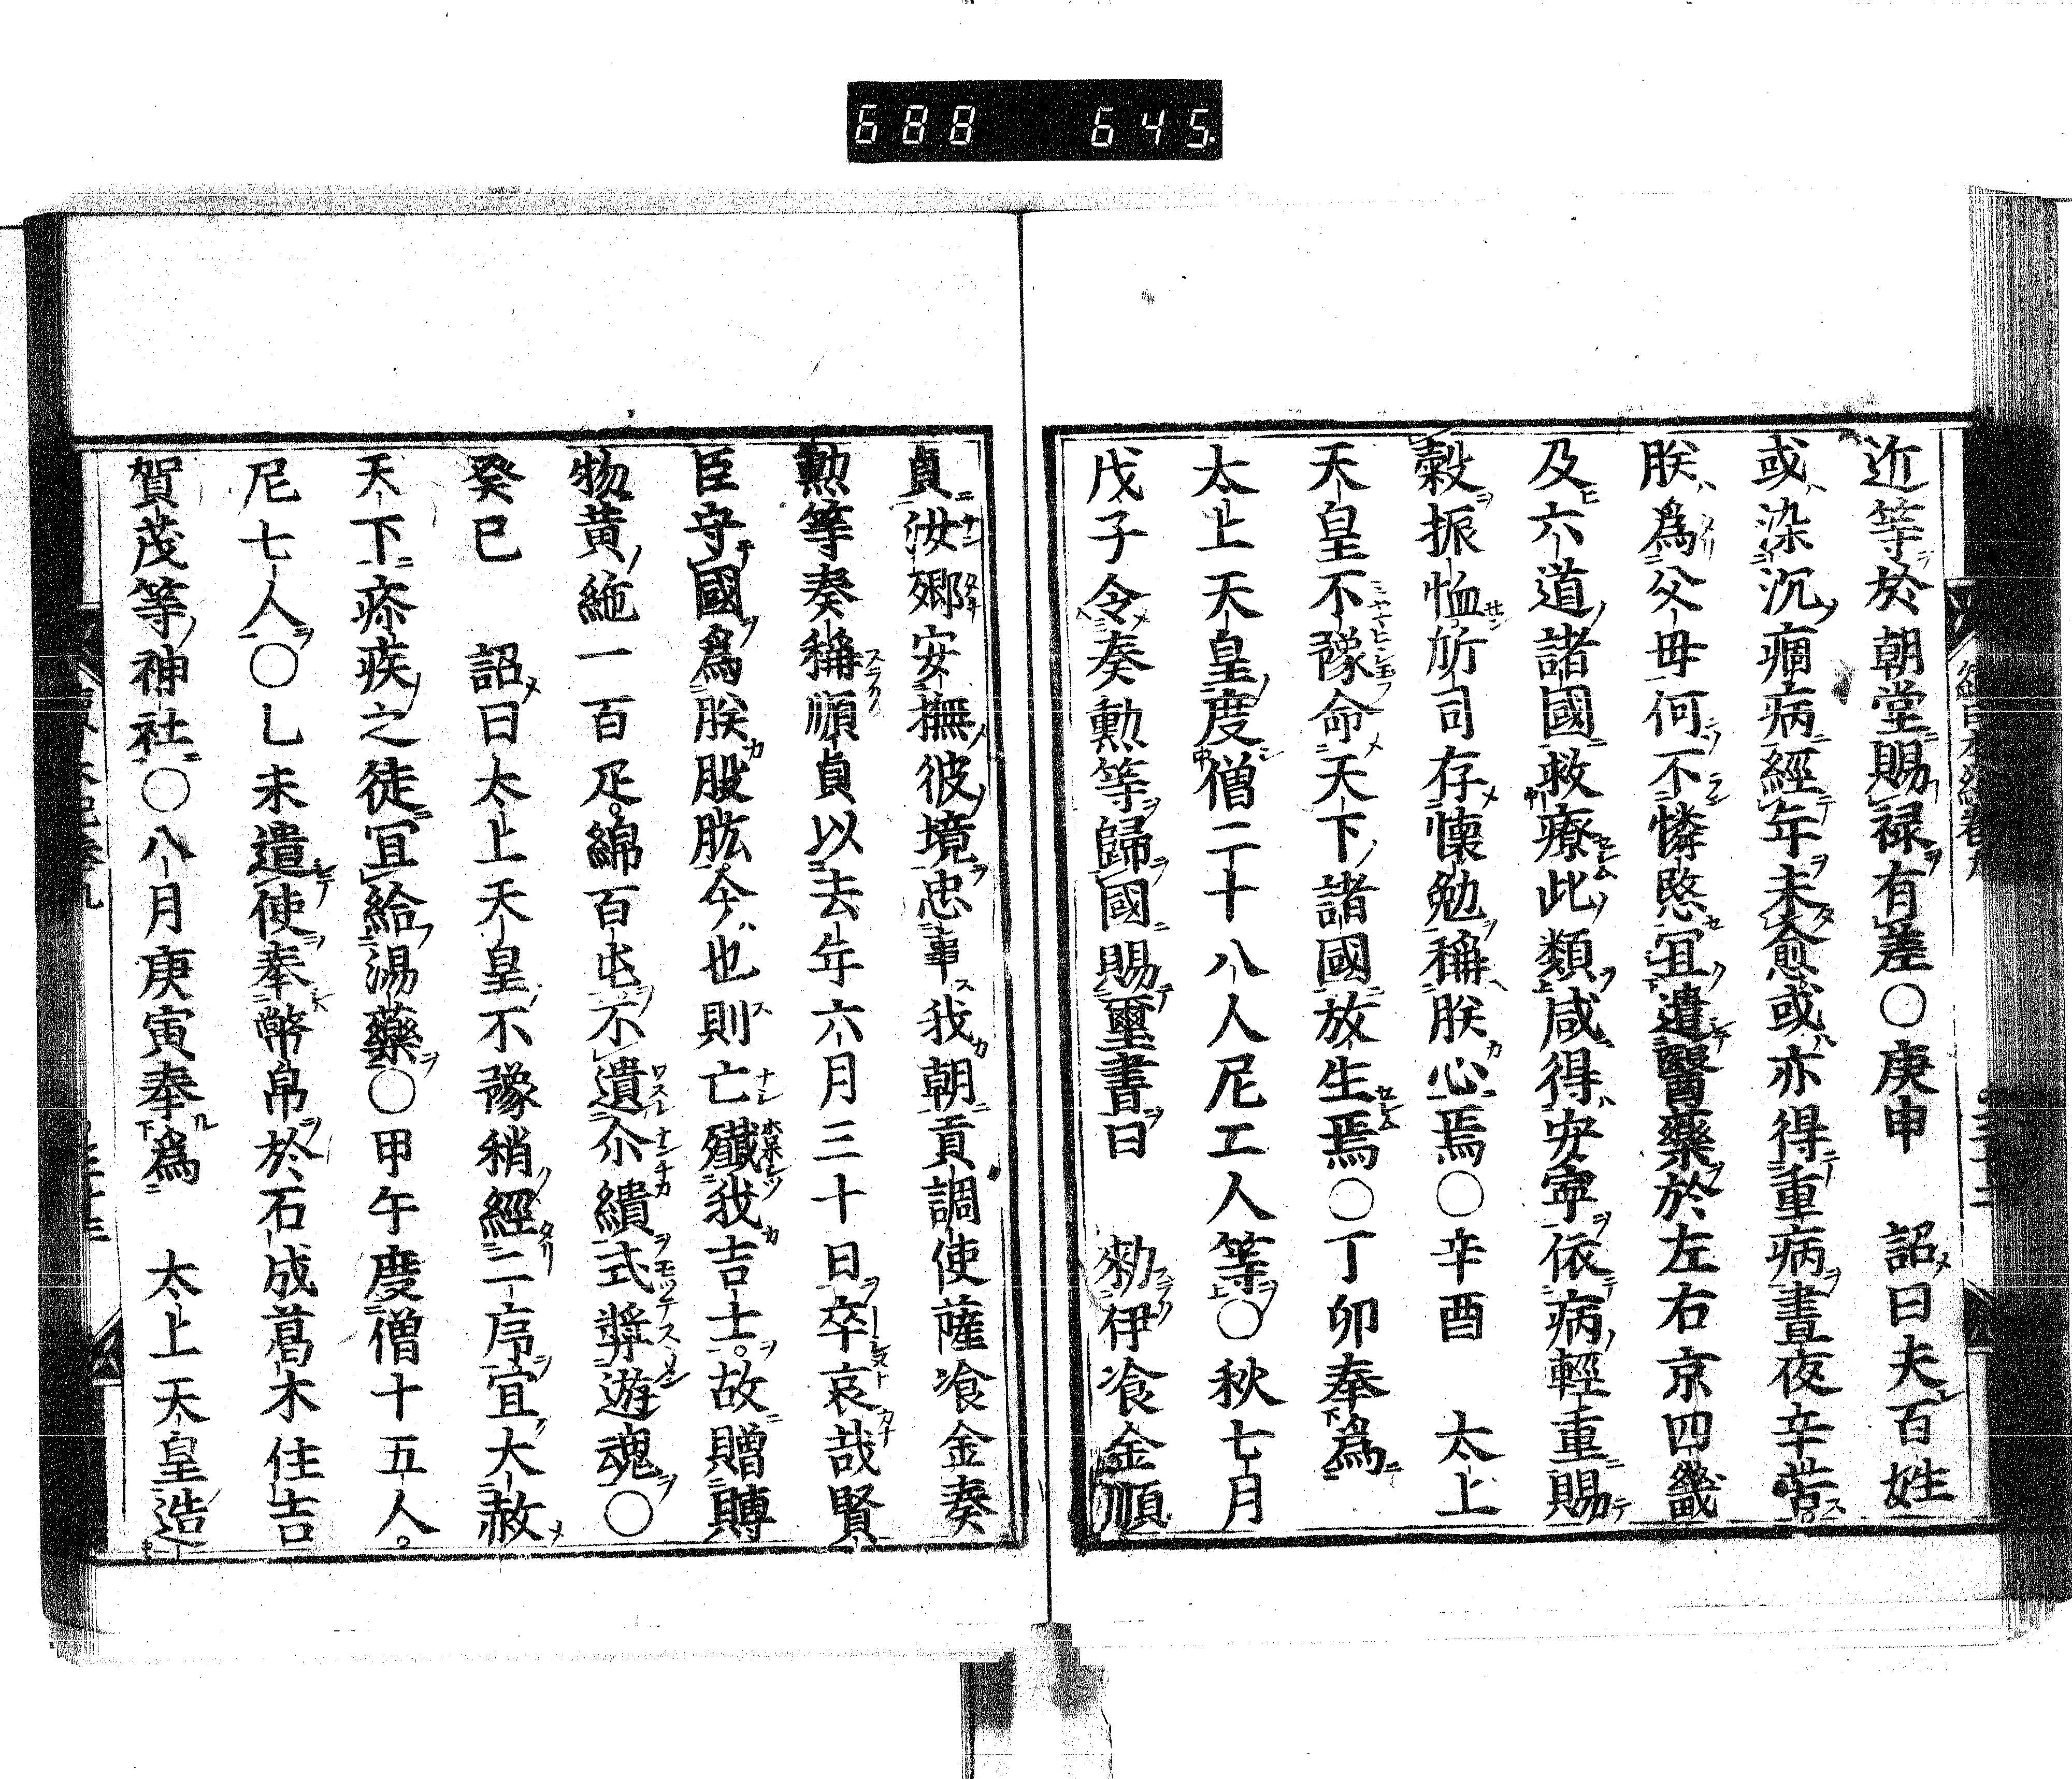 688 645
近等於朝堂賜禄有差〇庚申 詔曰夫百姓
或染沉痼病經年未愈或亦得重病晝夜辛苦
朕爲父母何不憐愍宜遣醫藥於左右京四畿
及六道諸國救療此類咸得安寧依病輕重賜
穀振恤所司存懐勉稱朕心焉〇辛酉 太上
天皇不豫命天下諸國放生焉〇丁卯奉爲
太上天皇度僧二十八人尼工人等〇秋七月
戊子令奏勲等歸國賜璽書曰 勑伊飡金順
貞汝卿安撫彼境忠事我朝貢調使薩飡金奏
勲等奏稱順貞以去年六月三十日卒哀哉賢
臣守國爲朕股肱今也則亡殲我吉士。故贈賻
物黄絁一百疋。綿百屯不遺尒績式奬遊魂〇
癸巳 詔曰太上天皇不豫稍經二序宜大赦
天下疹疾之徒宜給湯藥〇甲午度僧十五人。
尼七人〇乙未遣使奉幣帛於石成葛木住吉
賀茂等神社〇八月庚寅奉爲 太上天皇造